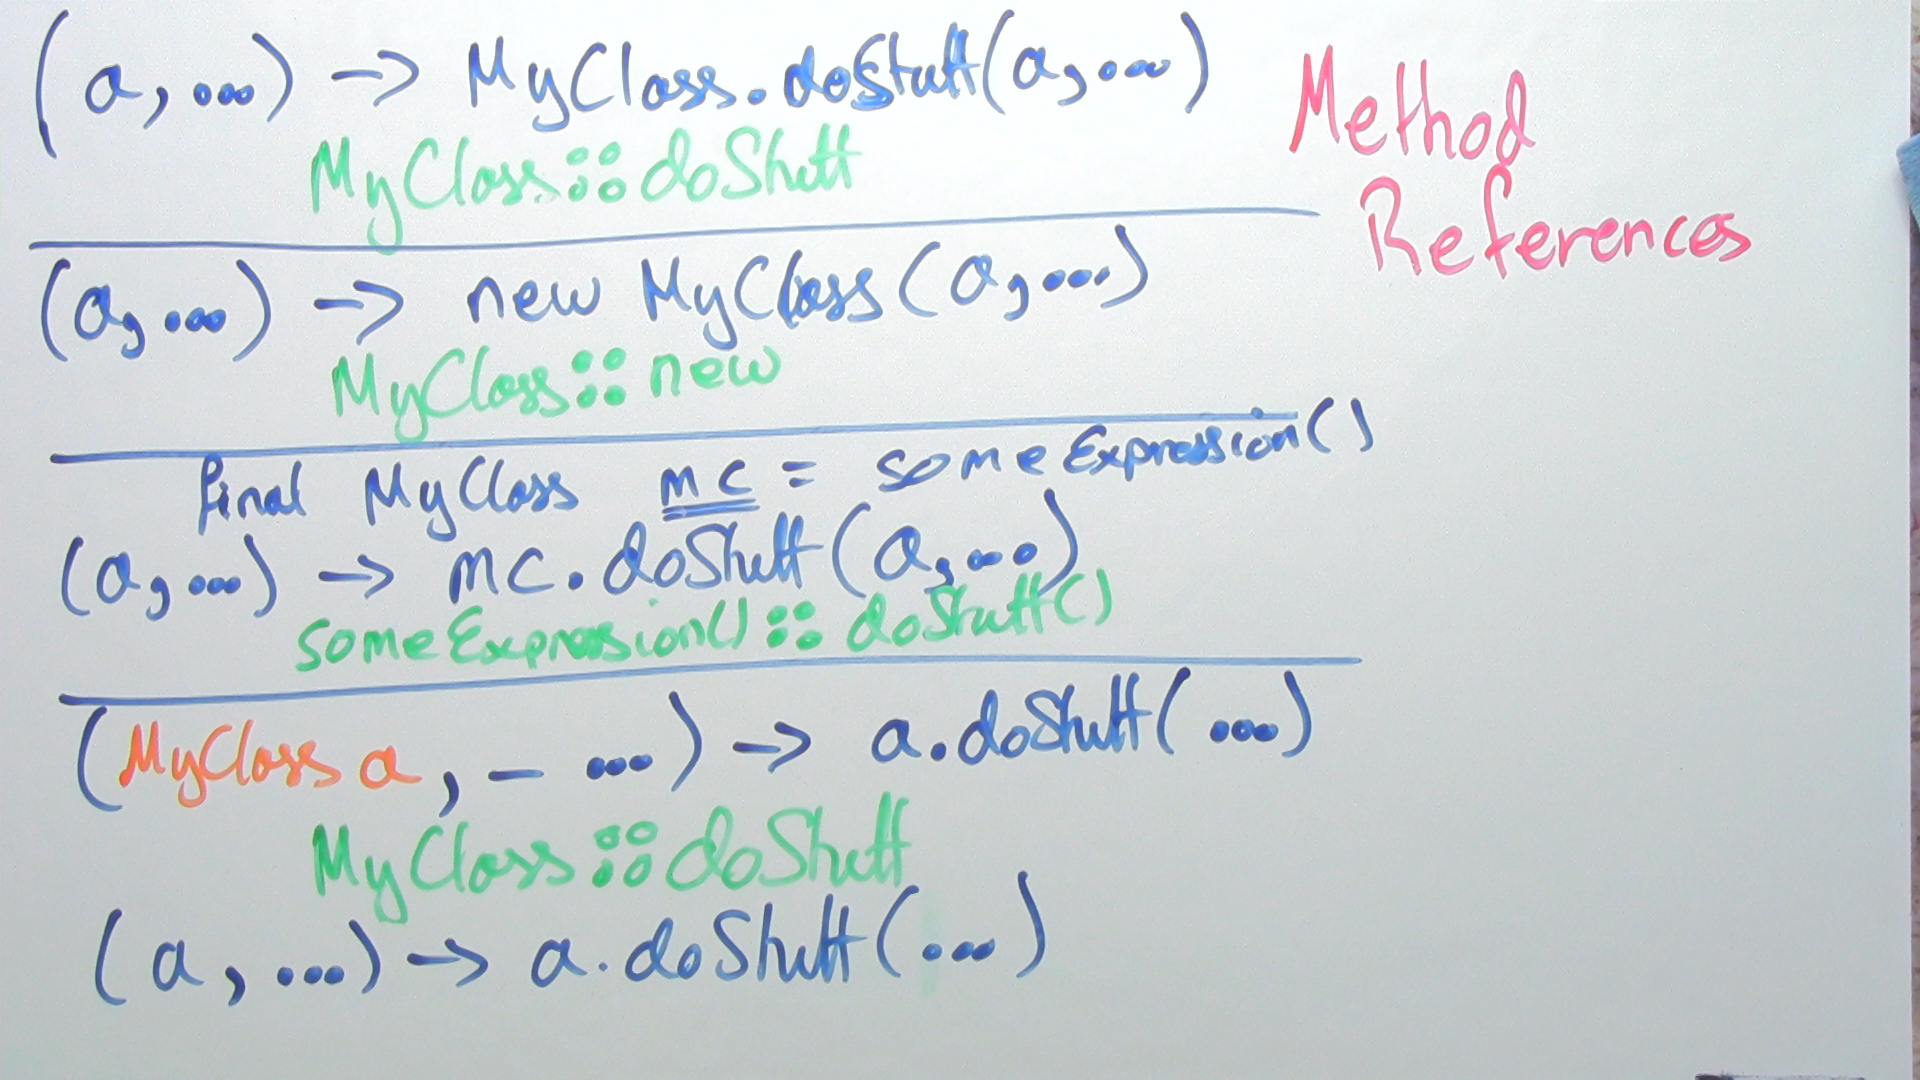 (a, ...) -> MyClass.doStuff(a, ...)
MyClass::doStuff
Method
References
(a, ...) -> new MyClass(a, ...)
MyClass::new
final MyClass mc = someExpression()
(a, ...) -> mc.doStuff(a, ...)
someExpression()::doStuff()
(MyClass a, - ...) -> a.doStuff(...)
MyClass::doStuff
(a, ...) -> a.doStuff(...)